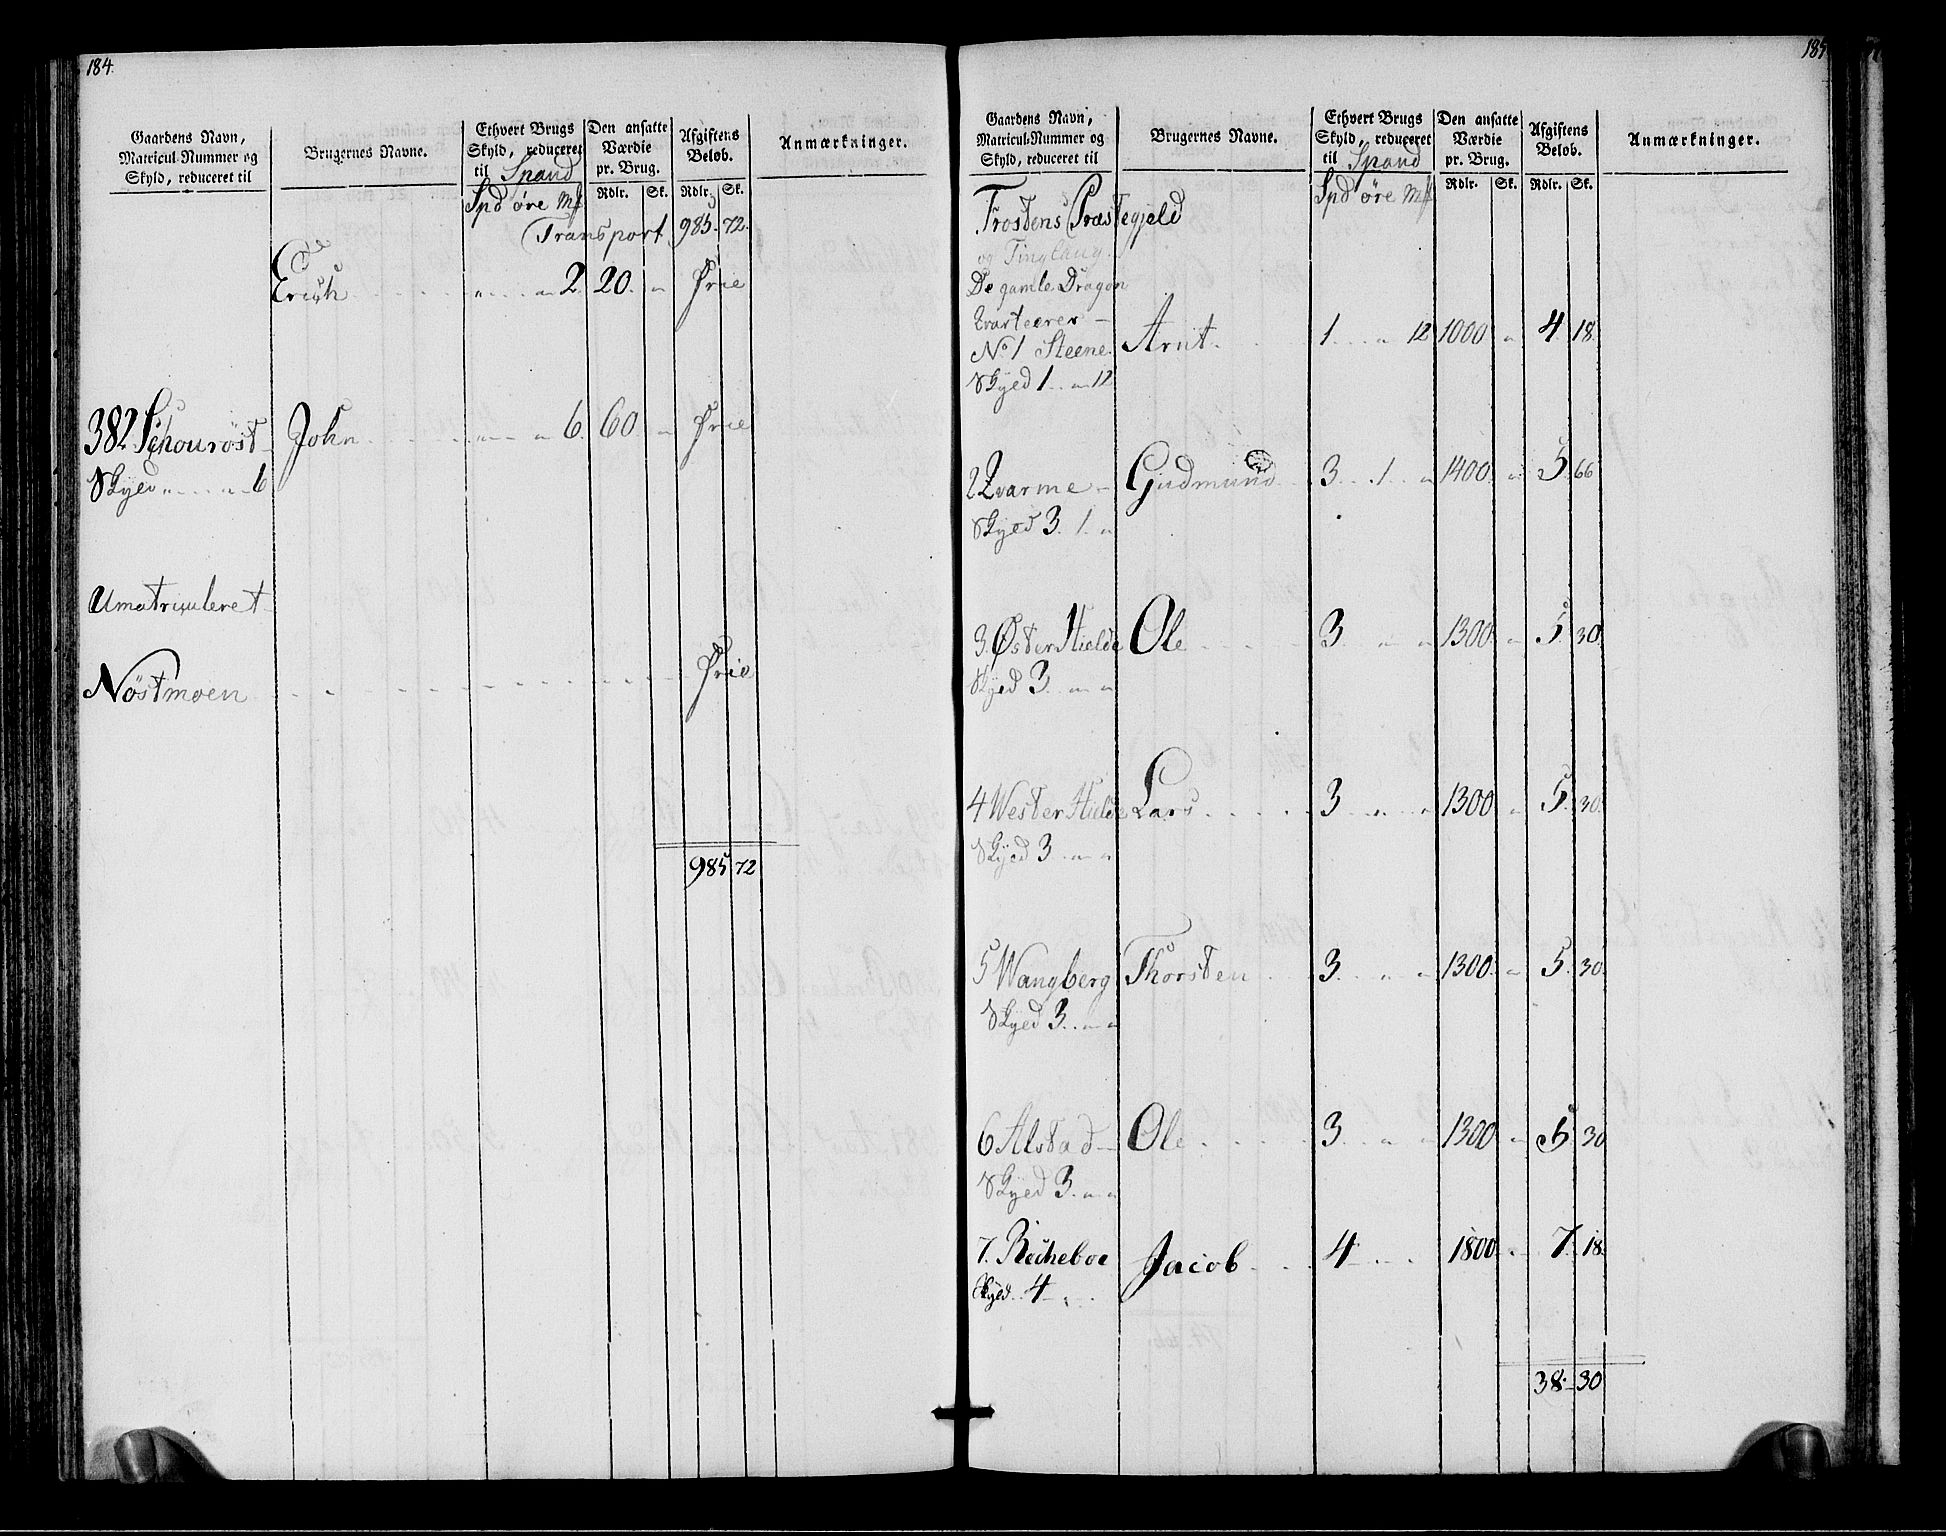 184.
Gaardens Navn,
Matricul-Nummer og
Skyld, reduceret til
Brugernes Navne.
Ethvert Brugs
Skyld, reduceret
til Spand
Den ansatte
Værdie
pr. Brug.
Afgiftens
Beløb.
Anmærkninger.
Spd øre Mk
Rdlr. Sk. Rdlr. Sk.
Transport 985. 72.
Erich 2. 20. Frie
382 Schourøst John 6. 60. Frie
Skyld 6
Umatriculeret
Nöstmoen Frie
985 72
185
Gaardens Navn,
Matricul-Nummer og
Skyld, reduceret til
Brugernes Navne.
Ethvert Brugs
Skyld, reduceret
til Spand
Den ansatte
Værdie
pr. Brug.
Afgiftens
Beløb.
Anmærkninger.
Spd øre Mk
Rdlr. Sk. Rdlr. Sk.
Frostens Præstegjeld
og Tinglaug.
De gamle Dragon
Qvarterer
No 1 Steene Arnt 1 12 1000 4 18.
Skyld 1 12
2 Qvarme Gudmund 3 1 1400 5 66
Skyld 3. 1
3. Øster Hielde Ole 3 1300 5. 30.
Skyld 3
4 Wester Hielde Lars 3 1300 5. 30.
Skyld 3
5 Wangberg Thorsten 3 1300 5. 30.
Skyld 3
6 Alstad Ole 3 1300 5 30
Skyld 3
7. Recheboe Jacob 4 1800 7. 18.
Skyld 4
38. 30